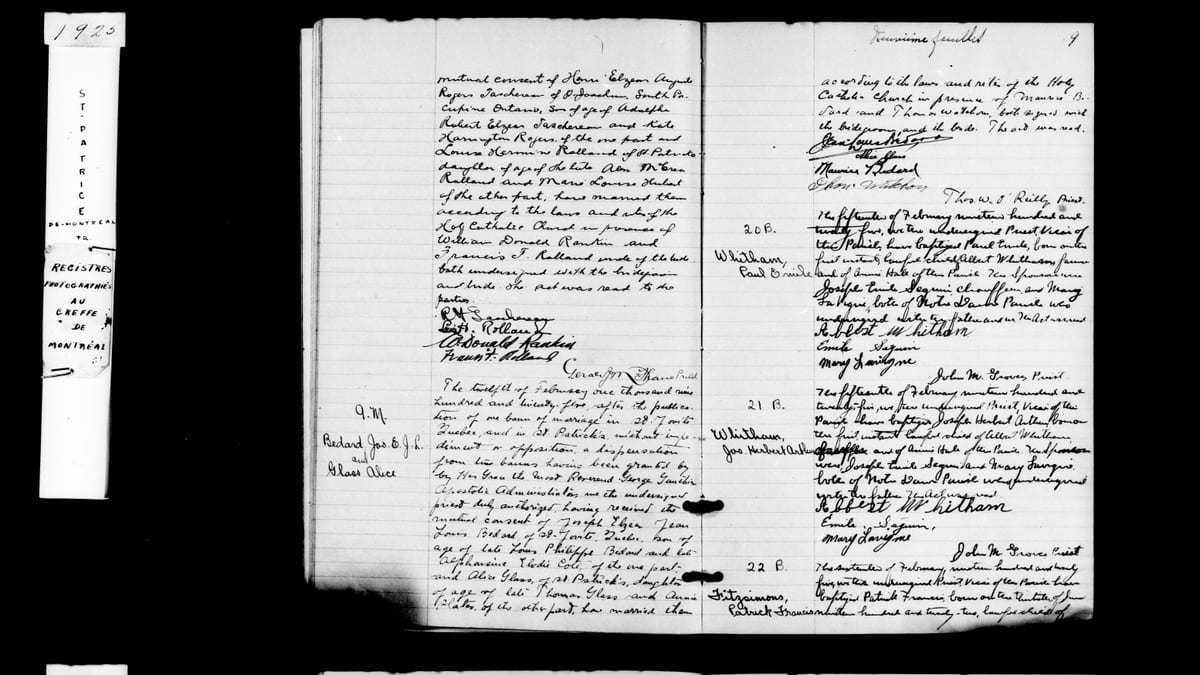 1925
ST-PATRICE
DE-MONTRÉAL
REGISTRES
PHOTOGRAPHIÉS
AU
GREFFE
DE
MONTRÉAL
mutual consent of Henri Elzear Auguste
Rogers Taschereau of S. Joachim, South Po-
rcupine Ontario, son of age of Adolphe
Robert Elzear Taschereau and Kate
Harrington Rogers, of the one part and
Louise Hermine Rolland of St Patrick's
daughter of age of the late Alex McCrea
Rolland and Marie Louise Hubert
of the other part, have married them
according to the laws and rites of the
Holy Catholic Church in presence of
William Donald Rankin and
Francis T. Rolland uncle of the bride
both undersigned with the bridegroom
and bride. The act was read to the
parties.
Rolland
W. Donald Rankin
Francis T. Rolland
Gerald J. McShane Priest
9. M.
Bedard Jos. E. J. L.
and
Glass Alice
The twelfth of February one thousand nine
hundred and twenty-five, after the publica-
tion of one bann of marriage in St. Jovite
Quebec, and in St. Patrick's, without impe-
diment or opposition, a dispensation
from two banns having been granted by
by His Grace the most Reverend George Gauthier
Apostolic Administrator we the undersigned
priest duly authorized, having received the
mutual consent of Joseph Elzear Jean
Louis Bedard of St. Jovite, Quebec, son of
age of late Louis Philippe Bedard and late
Alphonsine Elodie Cote, of the one part
and Alice Glass, of St. Patrick's, daughter
of age of late Thomas Glass and Annie
Slater, of the other part, have married them
Neuvième feuillet 9
according to the laws and rites of the Holy
Catholic Church in presence of Maurice B-
dard and Thomas Watchorn, both signed with
the bridegroom and the bride. The act was read.
Jean Louis Bedard
Alice Glass
Maurice Bedard
Thos. Watchorn
Thos. W. O'Reilly Priest.
20 B.
Whitham,
Paul Emile
The fifteenth of February nineteen hundred and
twenty five, we the undersigned Priest, Vicar of
this Parish, have baptized Paul Emile, born on the
first instant, lawful child of Albert Whitham
and of Annie Hale of this Parish The Sponsors were
Joseph Emile Seguin chauffeur, and Mary
Lavigne, both of Notre Dame Parish who
undersigned with the father and the Act was read
Albert Whitham
Emile Seguin
Mary Lavigne
John M. Groves Priest.
21 B.
Whitham,
Jos. Herbert Arthur
The fifteenth of February nineteen hundred and
twenty-five, we the undersigned Priest, Vicar of this
Parish have baptized Joseph Herbert Arthur, born on
the first instant lawful child of Albert Whitham,
and of Annie Hale of this Parish. The Sponsors
were, Joseph Emile Seguin and Mary Lavigne,
both of Notre Dame Parish who undersigned
with the father The Act was read
Albert Whitham
Emile Seguin,
Mary Lavigne
John M. Groves Priest
22 B.
Fitzsimons,
Patrick Francis
The sixteenth of February, nineteen hundred and twenty
five, we the undersigned Priest, Vicar of this Parish have
baptized Patrick Francis, born on the tenth of June
nineteen hundred and twenty-two, lawful child of